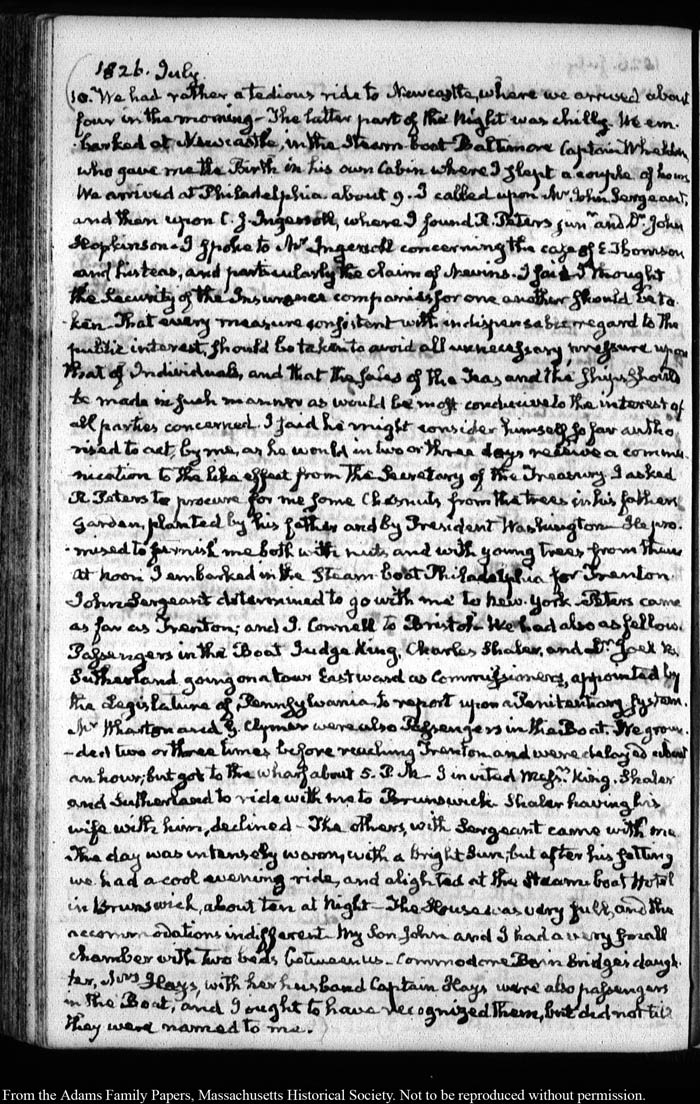 1826. July.
10. We had rather a tedious ride to Newcastle, where we arrived about
four in the morning - The latter part of the Night was chilly. We em-
-barked at Newcastle, in the Steam-boat Baltimore Captain
who gave me the Birth in his own Cabin where I slept a couple of hours
We arrived at Philadelphia about 9. I called upon Mr. John Sergeant,
and then upon C. J. Ingersoll, where I found R. Peters junr. and Dr. John
Hopkinson - I spoke to Mr. Ingersoll concerning the case of E. Thomson
and his teas, and particularly the claim of Nevins. I said I thought
the Security of the Insurance companies for one another should be ta-
ken - That every measure consistent with indispensable regard to the
public interest, should be taken to avoid all unnecessary pressure upon
that of Individuals, and that the sales of the Teas and the Ships should
be made in such manner as would be most conducive to the interest of
all parties concerned. I said he might consider himself so far autho-
rised to act, by me, as he would in two or three days receive a commu-
-nication to the like effect from the Secretary of the Treasury. I asked
R. Peters to procure for me some Chesnuts from the trees in his fathers
Garden, planted by his father and by President Washington - He pro-
-mised to furnish me both with nuts and with young trees from them
At noon I embarked in the Steam-boat Philadelphia for Trenton.
John Sergeant determined to go with me to New-York - Peters came
as far as Trenton; and J. Connell to Bristol - We had also as fellow-
Passengers in the Boat Judge King, Charles Shaler, and Dr. Joel B.
Sutherland going on a tour Eastward as Commissioners, appointed by
the Legislature of Pennsylvania to report upon a Penitentiary System.
Mr Wharton and G. Clymer were also Passengers in the Boat. We groun-
-ded two or three times before reaching Trenton and were delayed about
an hour, but got to the wharf about 5. P.M. - I invited Messrs. King. Shaler
and Sutherland to ride with me to Brunswick - Shaler having his
wife with him, declined - The others, with Sergeant came with me
The day was intensely warm, with a bright Sun, but after his setting
we had a cool evening ride, and alighted at the Steam boat Hotel
in Brunswick, about ten at Night - The House was very full, and the
accommodations indifferent - My Son John and I had a very small
chamber with two beds between us - Commodore Bainbridge's daugh-
ter, Mrs Hays, with her husband Captain Hays were also passengers
in the Boat, and I ought to have recognized them, but did not till
they were named to me.
From the Adams Family Papers, Massachusetts Historical Society. Not to be reproduced without permission.